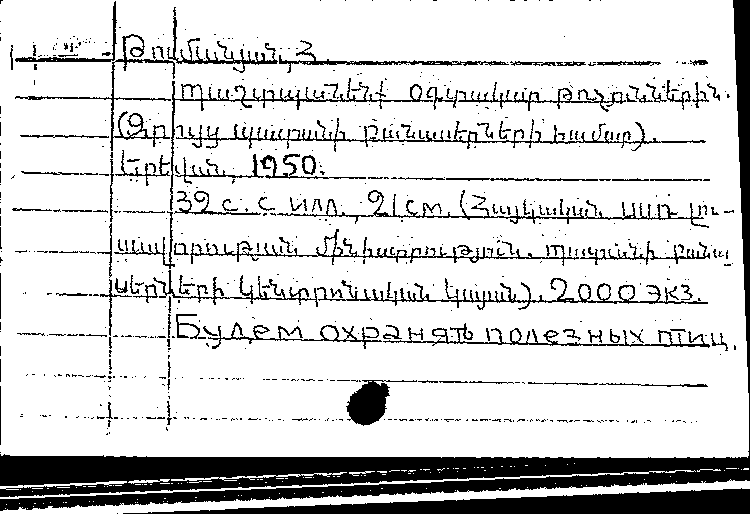 Թումանյան, Հ
Պաշտպանենք օգտակար թռչուններին.
(Զրույց պատանի բանասերների համար).
Երեվան, 1950.
39 с. с илл., 21 см. (Հայկական ՍՍՌ լու-
սավորության մինիստրություն. Պատանի բանա
սերների կենտրոնական կայան). 2000 экз.
Будем охранять полезных птиц.